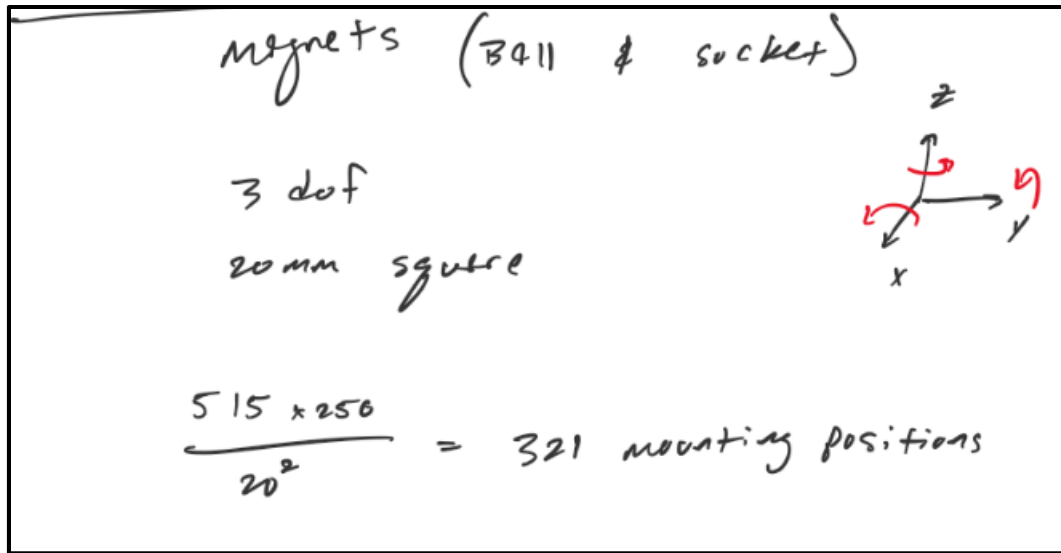 magnets (Ball & socket)
z
3 dof
y
20mm square
x
515 x 250
20²
= 321 mounting positions